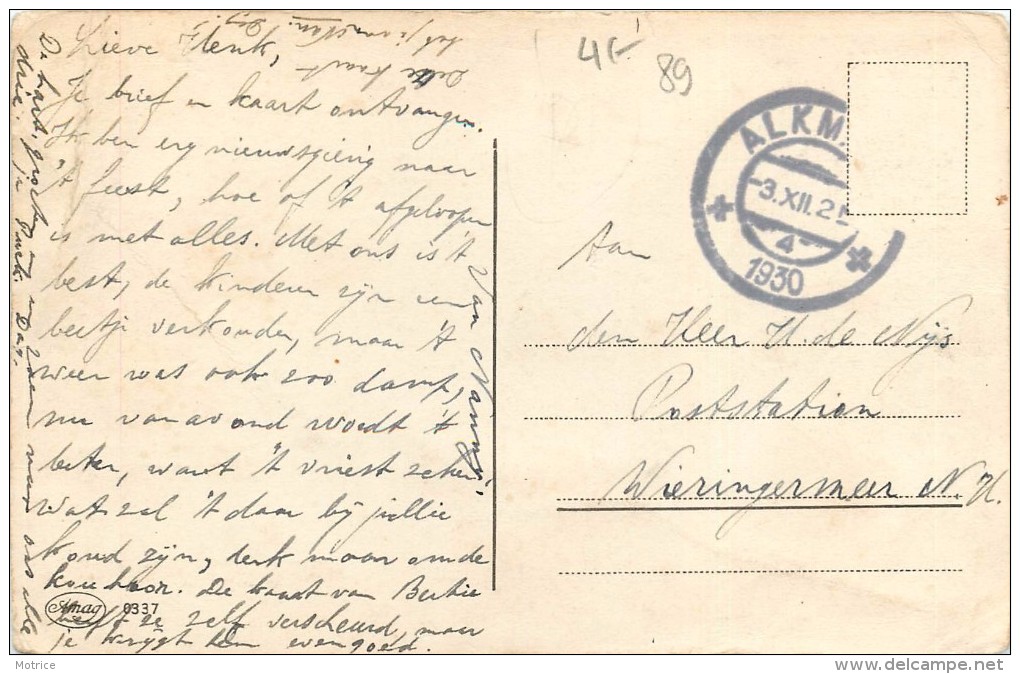 Lieve Henk,
Je brief en kaart ontvangen.
Ik ben erg nieuwsgierig naar
't feest, hoe of 't afgeloopen
is met alles. Met ons is 't
best, de kinderen zijn een
beetje verkouden, maar 't
weer was ook zoo damp,
nu vanavond wordt 't
beter, want 't vriest zeker.
Wat zal 't daar bij jullie
koud zijn, denk maar om de
kou hoor. De kaart van Bertie
heeft ze zelf verscheurd, maar
je krijgt hem evengoed.
Van Nanny.
De hart. groeten en zoenen van ons alle
drie. Dag.
Deze kaart
heb je
Amag 0337
4,-
89
ALKM
-3.XII.2
4
1930
Aan
den Heer H. de Nijs
Poststation
Wieringermeer N.H.
Motrice
delcampe.net